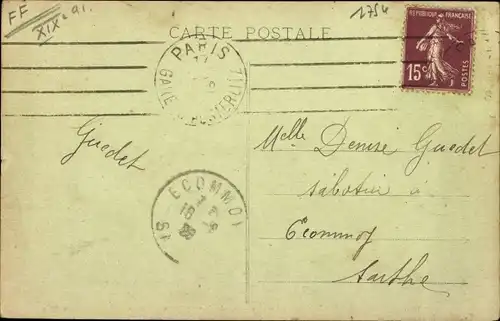 FF
XIX e 91.
1754
CARTE POSTALE
REPUBLIQUE FRANÇAISE
15c
POSTES
PARIS
GARE D'AUSTERLITZ
Guedet
Melle Denise Guedet
sabotier à
Ecommoy
Sarthe
ECOMMOY